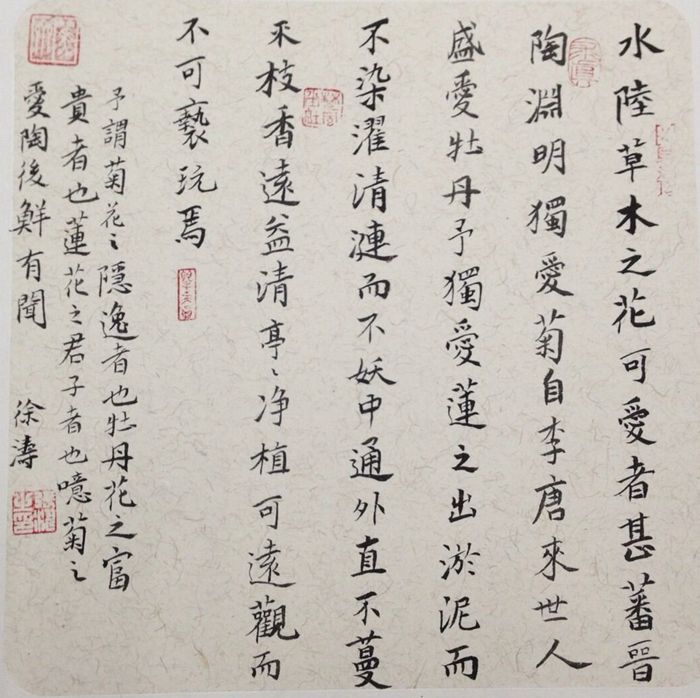 水陸草木之花可愛者甚蕃晉
陶淵明獨愛菊自李唐來世人
盛愛牡丹予獨愛蓮之出淤泥而
不染濯清漣而不妖中通外直不蔓
不枝香遠益清亭〻净植可遠觀而
不可褻玩焉
予謂菊花之隱逸者也牡丹花之富
貴者也蓮花之君子者也噫菊之
愛陶後鮮有聞
徐濤